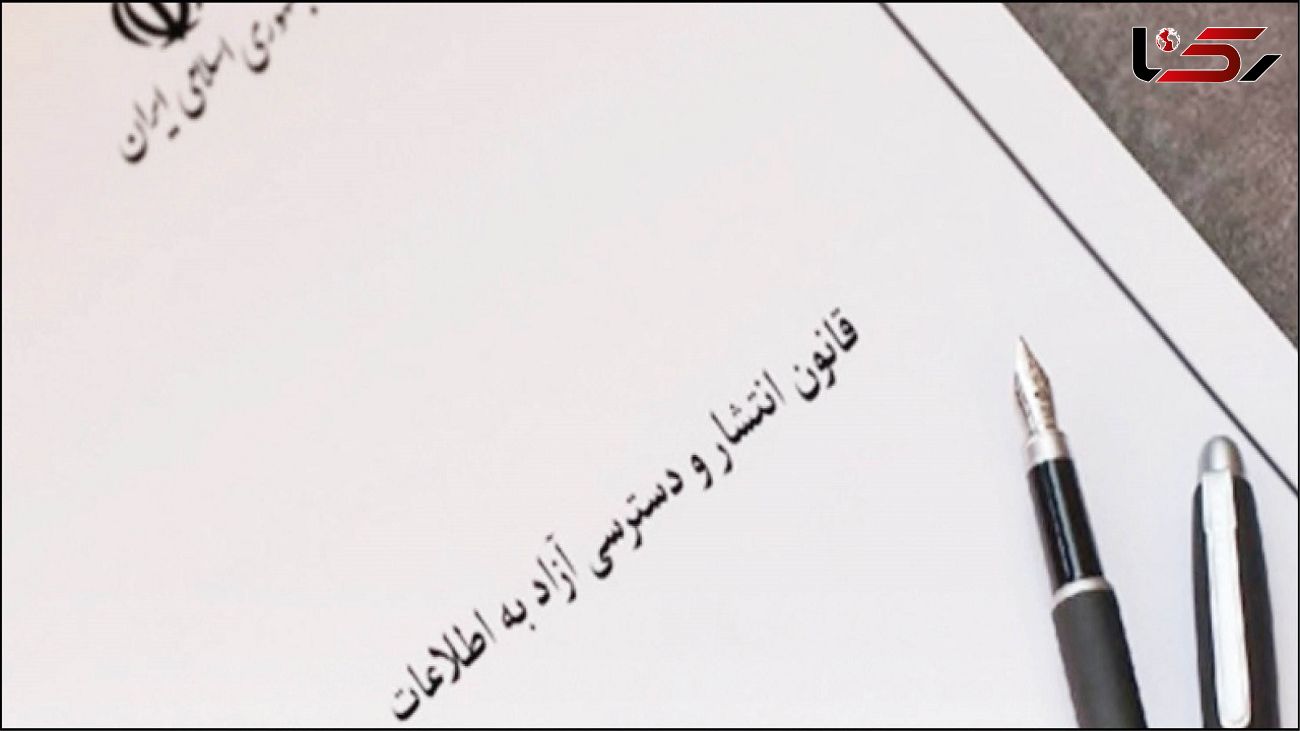 رکنا
اسلامی ایران
قانون انتشار و دسترسی آزاد به اطلاعات